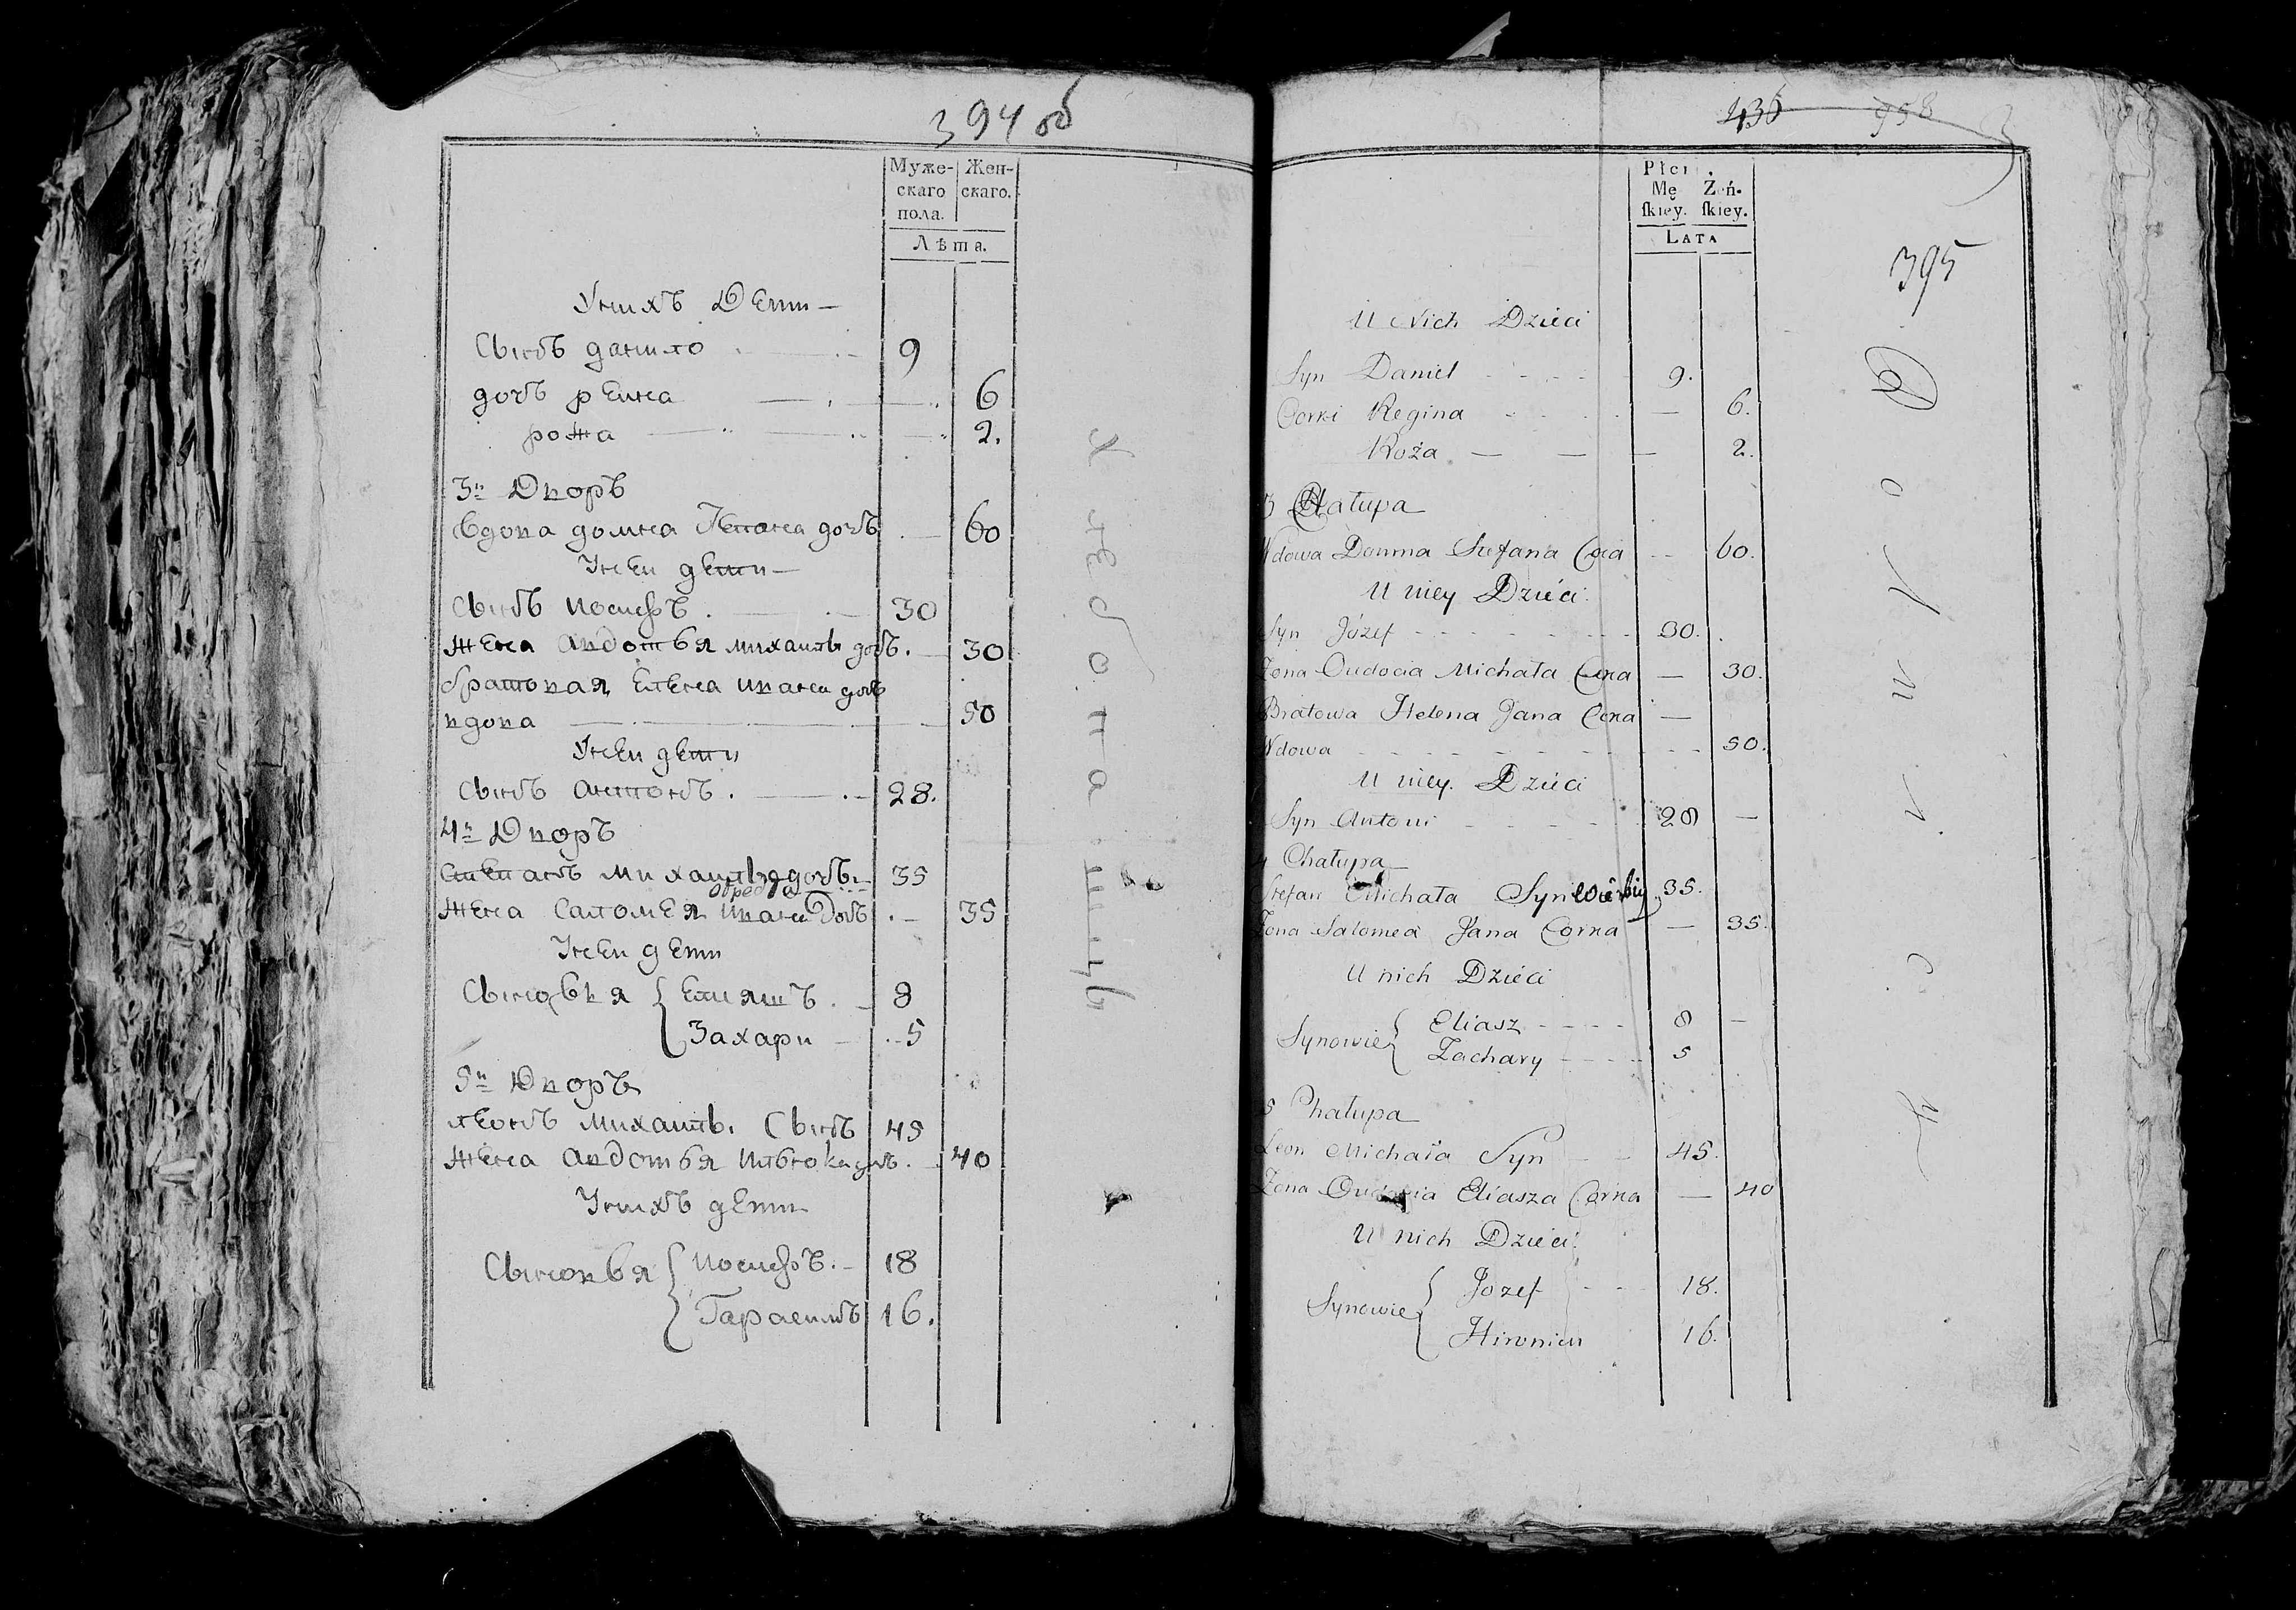 394 об
Муже- Жен-
скаго скаго.
пола.
Лѣта.
Унихъ Дети —
Сынъ данило 9
дочъ реина 6
рожа 2.
3й Дворъ
Вдова домна дочъ 60
Унеи дети —
Сынъ иосифъ 30
жена авдотья михаил дочъ. 30
братовая елена ивана дочъ
вдова 50
Унеи дети
Сынъ антонъ. 28.
4й Дворъ
Степанъ 35
жена саломея ивана дочъ 35
Унеи дети
Сыновья Елияшъ. 8
Захари 5
5й Дворъ
леонъ михаил. Сынъ 45
жена авдотья 40
Унихъ дети
Сыновья иосифъ. 18
Гарасимъ 16.
436 958
Płci
Mę Żeń-
ſkiey. ſkiey.
LATA
395
U Nich Dzieci
Syn Daniel 9.
Corki Regina 6.
Roża 2.
3 Chałupa
Wdowa Domna Stefana Cora 60.
U niey Dzieci.
Syn Józef 30.
Zona Oudocia Michała Cora 30.
Bratowa Helena Jana Cora
Wdowa 50.
U niey. Dzieci
Syn Antoni 28
4 Chałupa
Stefan Michała Syn 35.
Zona Salomea Jana Corka 35.
U nich Dzieci
Synowie Eliasz 8
Zachary 5
5 Chałupa
Leon Michała Syn 45.
Zona Eliasza Corka 40
U nich Dzieci.
Synowie Jozef 18.
16.